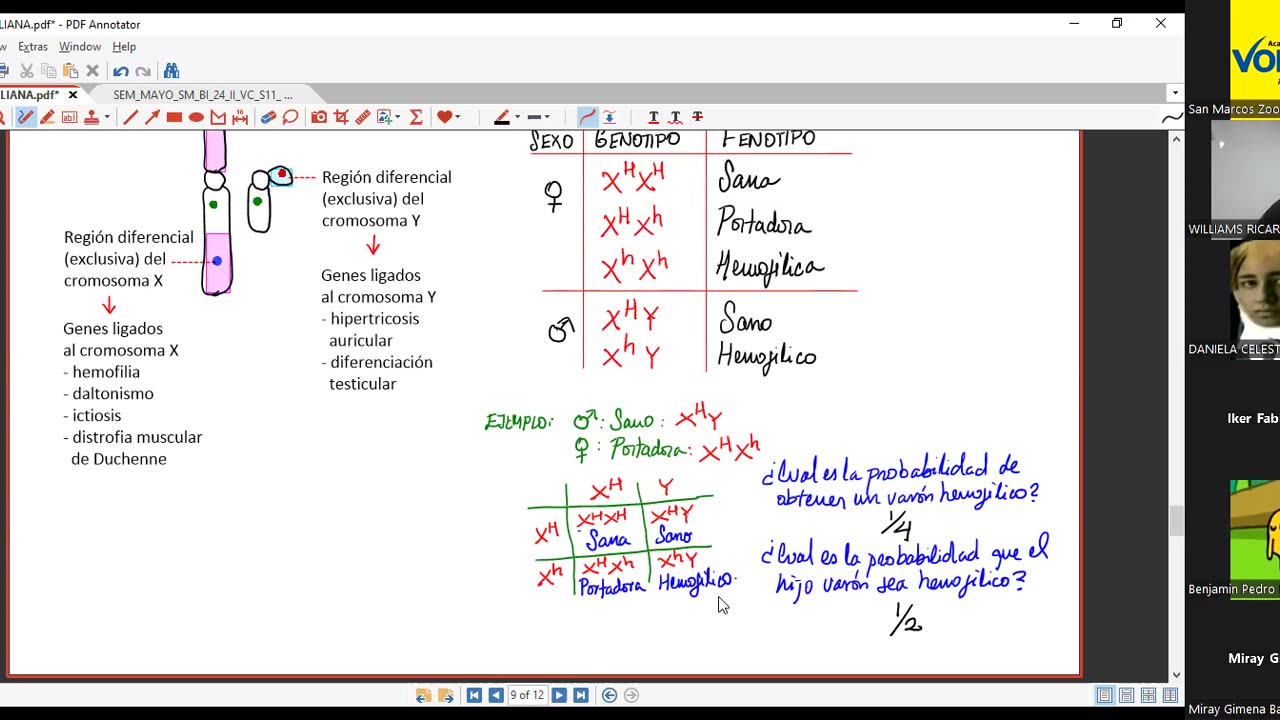 LIANA.pdf* - PDF Annotator
w Extras Window Help
LIANA.pdf* SEM_MAYO_SM_BI_24_II_VC_S11_ ...
SEXO GENOTIPO FENOTIPO
♀ XᴴXᴴ Sana
XᴴXʰ Portadora
XʰXʰ Hemofílica
♂ XᴴY Sano
XʰY Hemofílico
Región diferencial
(exclusiva) del
cromosoma Y
Genes ligados
al cromosoma Y
- hipertricosis
auricular
- diferenciación
testicular
Región diferencial
(exclusiva) del
cromosoma X
Genes ligados
al cromosoma X
- hemofilia
- daltonismo
- ictiosis
- distrofia muscular
de Duchenne
EJEMPLO: ♂: Sano: XᴴY
♀: Portadora: XᴴXʰ
Xᴴ Y
Xᴴ XᴴXᴴ XᴴY
Sana Sano
Xʰ XᴴXʰ XʰY
Portadora Hemofílico.
¿Cual es la probabilidad de
obtener un varón hemofílico?
1/4
¿Cual es la probabilidad que el
hijo varón sea hemofílico?
1/2
9 of 12
Aca
VO
San Marcos Zoo
WILLIAMS RICAR
DANIELA CELEST
Iker Fab
Benjamin Pedro
Miray G
Miray Gimena Ba